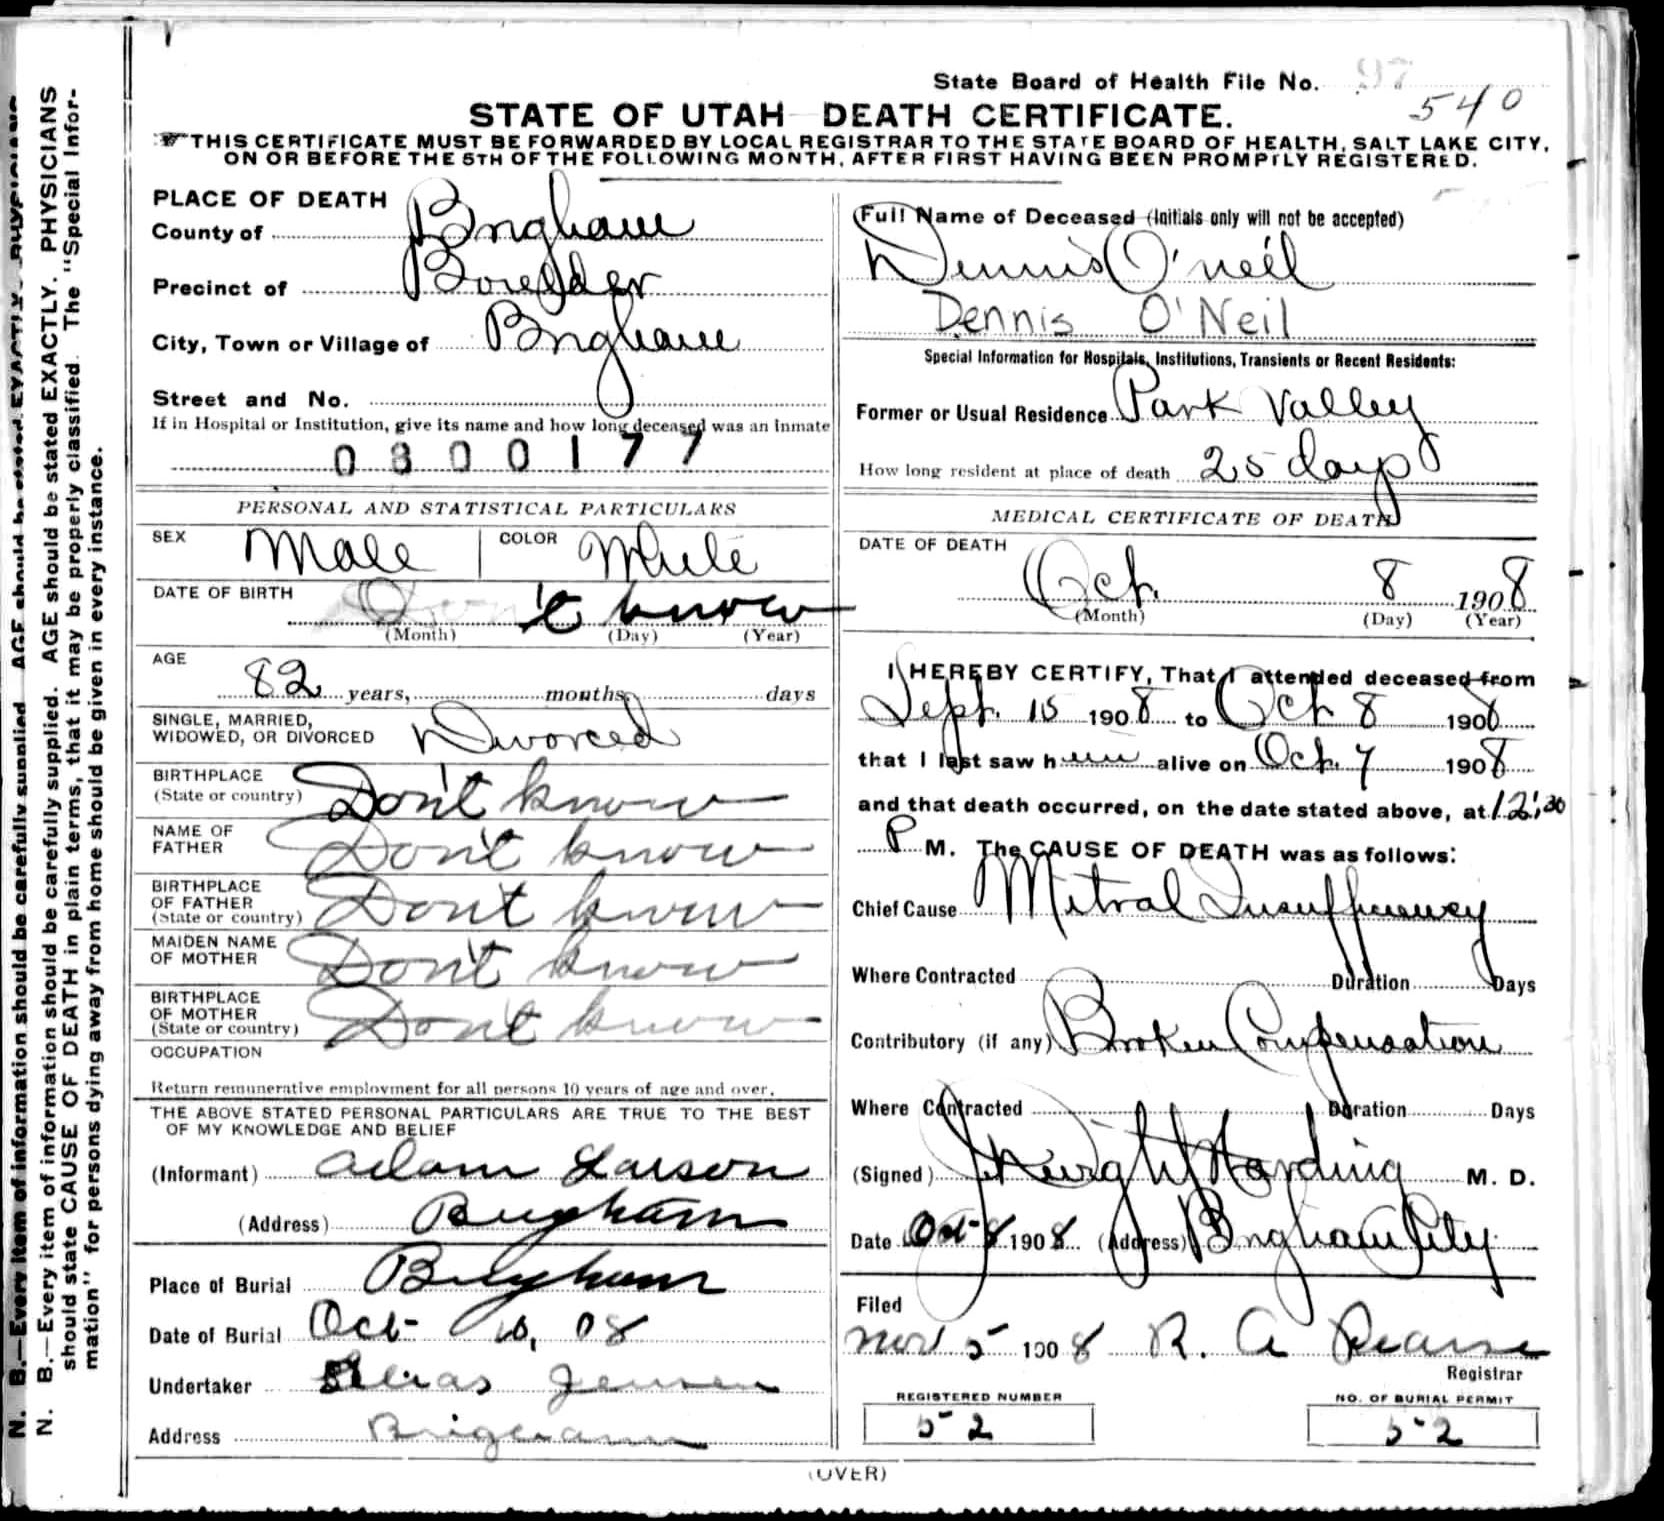 State Board of Health File No. 97
540
STATE OF UTAH DEATH CERTIFICATE.
THIS CERTIFICATE MUST BE FORWARDED BY LOCAL REGISTRAR TO THE STATE BOARD OF HEALTH, SALT LAKE CITY,
ON OR BEFORE THE 5TH OF THE FOLLOWING MONTH, AFTER FIRST HAVING BEEN PROMPTLY REGISTERED.
N. B.—Every item of information should be carefully supplied. AGE should be stated EXACTLY. PHYSICIANS
N. B.—Every item of information should be carefully supplied. AGE should be stated EXACTLY. PHYSICIANS
should state CAUSE OF DEATH in plain terms, that it may be properly classified. The "Special Infor-
mation" for persons dying away from home should be given in every instance.
PLACE OF DEATH
County of Brigham
Precinct of Boxelder
City, Town or Village of Brigham
Street and No.
If in Hospital or Institution, give its name and how long deceased was an Inmate
0300177
PERSONAL AND STATISTICAL PARTICULARS
SEX Male COLOR White
DATE OF BIRTH Don't know
(Month) (Day) (Year)
AGE
82 years, months, days
SINGLE, MARRIED,
WIDOWED, OR DIVORCED Divorced
BIRTHPLACE
(State or country) Don't know
NAME OF
FATHER Don't know
BIRTHPLACE
OF FATHER
(State or country) Don't know
MAIDEN NAME
OF MOTHER Don't know
BIRTHPLACE
OF MOTHER
(State or country) Don't know
OCCUPATION
Return remunerative employment for all persons 10 years of age and over.
THE ABOVE STATED PERSONAL PARTICULARS ARE TRUE TO THE BEST
OF MY KNOWLEDGE AND BELIEF
(Informant) Adam Larson
(Address) Brigham
Place of Burial Brigham
Date of Burial Oct 10, 08
Undertaker Elias Jensen
Address Brigham
Full Name of Deceased (Initials only will not be accepted)
Dennis O'neil
Dennis O'Neil
Special Information for Hospitals, Institutions, Transients or Recent Residents:
Former or Usual Residence Park Valley
How long resident at place of death 25 days
MEDICAL CERTIFICATE OF DEATH
DATE OF DEATH
Oct. 8 1908
(Month) (Day) (Year)
I HEREBY CERTIFY, That I attended deceased from
Sept. 15 1908 to Oct 8 1908
that I last saw him alive on Oct. 7 1908
and that death occurred, on the date stated above, at 12:30
P M. The CAUSE OF DEATH was as follows:
Chief Cause Mitral Insufficiency
Where Contracted Duration Days
Contributory (if any) Broken Compensation
Where Contracted Duration Days
(Signed) Harding M. D.
Date Oct 8 1908 (Address) Brigham City
Filed
Nov 5 1908 R. A Pearse
Registrar
REGISTERED NUMBER
52
NO. OF BURIAL PERMIT
52
(OVER)